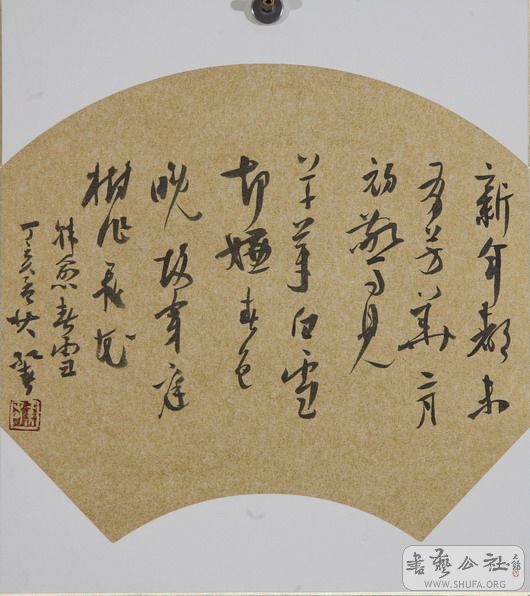 新年都未
有芳華二月
初驚見
草芽白雪
却嫌春色
晚故穿庭
樹作飛花
韓愈春雪
丁亥
書藝公社
WWW.SHUFA.ORG